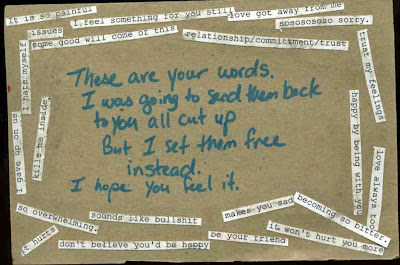 It is so painful
I feel something for you still
love got away from me
sososososo sorry.
issues
some good will come of this
relationship/committment/trust
trust my feelings
I hate myself
kills me inside
I gave up on us
These are your words.
I was going to send them back
to you all cut up
But I set them free
instead.
I hope you feel it.
happy by being with you
love always too
so overwhelming.
sounds like bullshit
makes you sad
becoming so bitter.
it hurts
don't believe you'd be happy
be your friend
it won't hurt you more